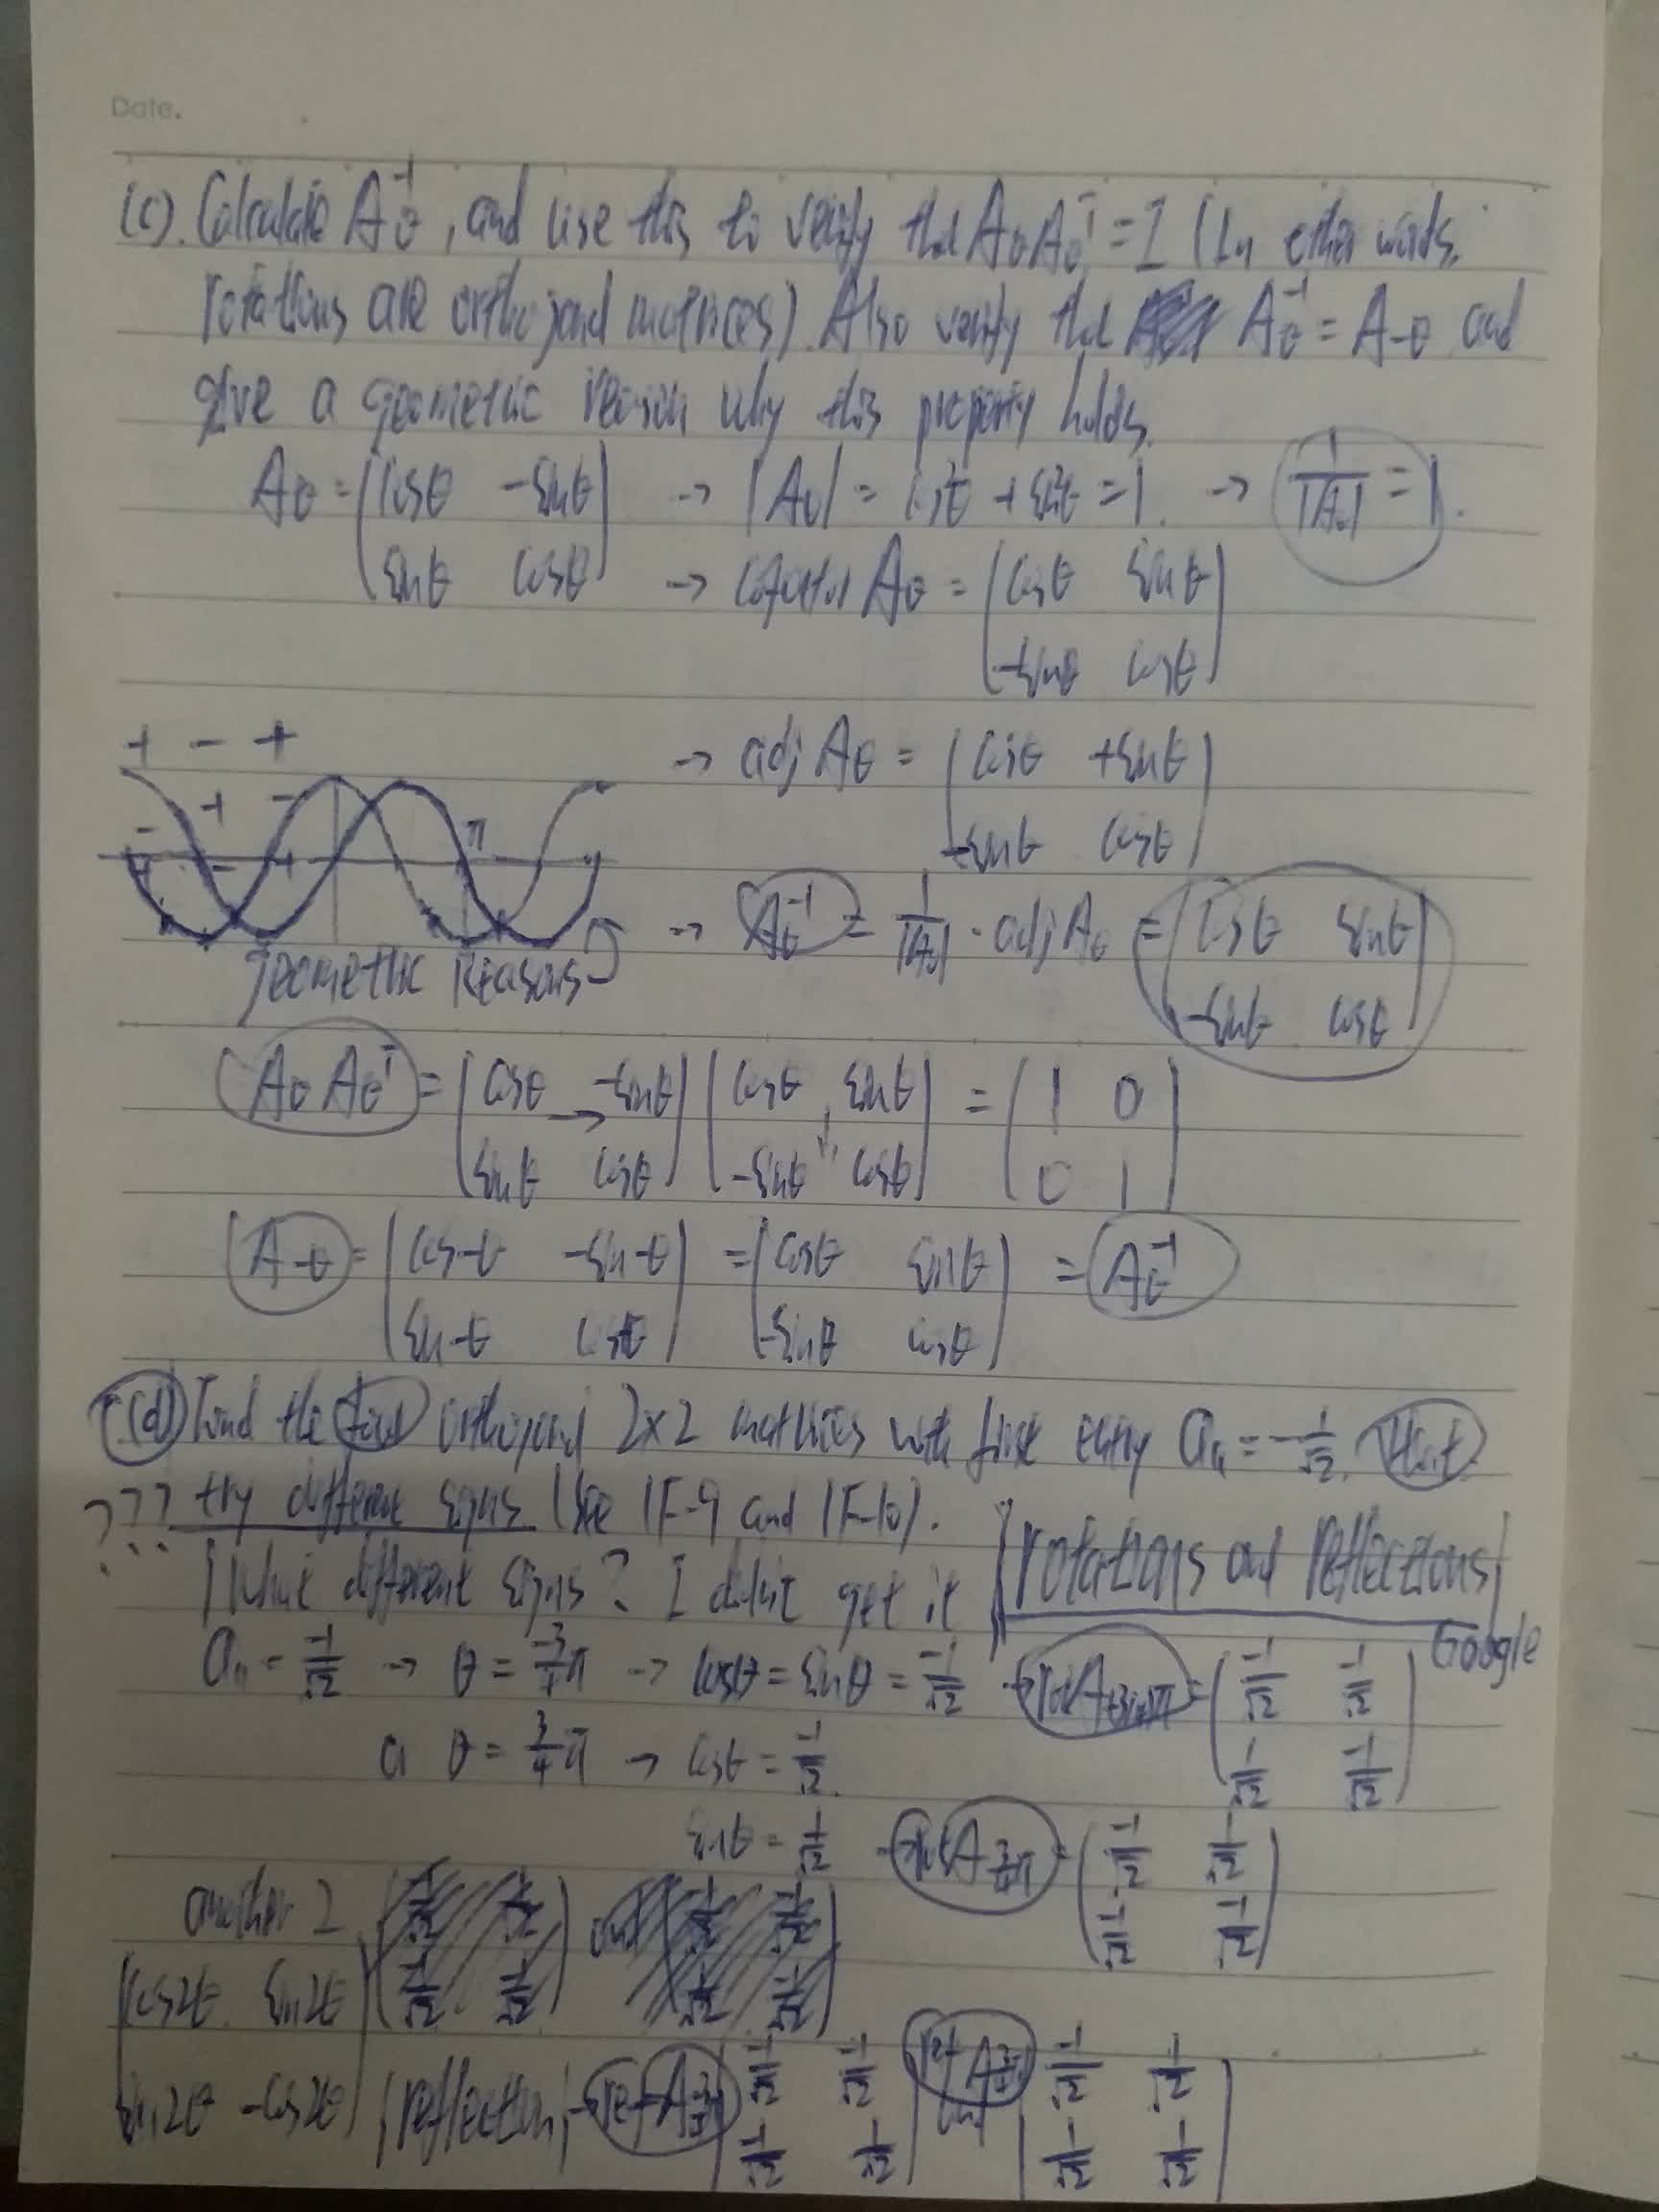 Date.
(c). Calculate A_θ^{-1}, and use this to verify that A_θ A_θ^{-1} = I (In other words,
rotations are orthogonal matrices). Also verify that A_θ^{-1} = A_{-θ} and
give a geometric reason why this property holds.
A_θ = (cosθ -sinθ; sinθ cosθ) → |A_θ| = cos²θ + sin²θ = 1. → 1/|A_θ| = 1.
→ cofactor A_θ = (cosθ sinθ; -sinθ cosθ)
+ - +
→ adj A_θ = (cosθ +sinθ; -sinθ cosθ)
- + -
π
+ - +
→ A_θ^{-1} = 1/|A_θ| · adj A_θ = (cosθ sinθ; -sinθ cosθ)
geometric Reasons
A_θ A_θ^{-1} = (cosθ -sinθ; sinθ cosθ) (cosθ sinθ; -sinθ cosθ) = (1 0; 0 1)
A_{-θ} = (cos-θ -sin-θ; sin-θ cos-θ) = (cosθ sinθ; -sinθ cosθ) = A_θ^{-1}
(d) Find the four orthogonal 2×2 matrices with first entry a₁₁ = -1/√2. Hint
??? try different signs (See 1F-9 and 1F-10).
What different signs? I didn't get it rotations and reflections
Google
a₁₁ = -1/√2 → θ = -3/4π → cosθ = sinθ = -1/√2 → (-1/√2 -1/√2; 1/√2 -1/√2)
θ = 3/4π → cosθ = -1/√2.
sinθ = 1/√2 → rot A_{3/4π} = (-1/√2 1/√2; -1/√2 -1/√2)
another 2 and
(cos2θ sin2θ; sin2θ -cos2θ) (reflection) → (-1/√2 -1/√2; -1/√2 1/√2) and (-1/√2 1/√2; 1/√2 1/√2)